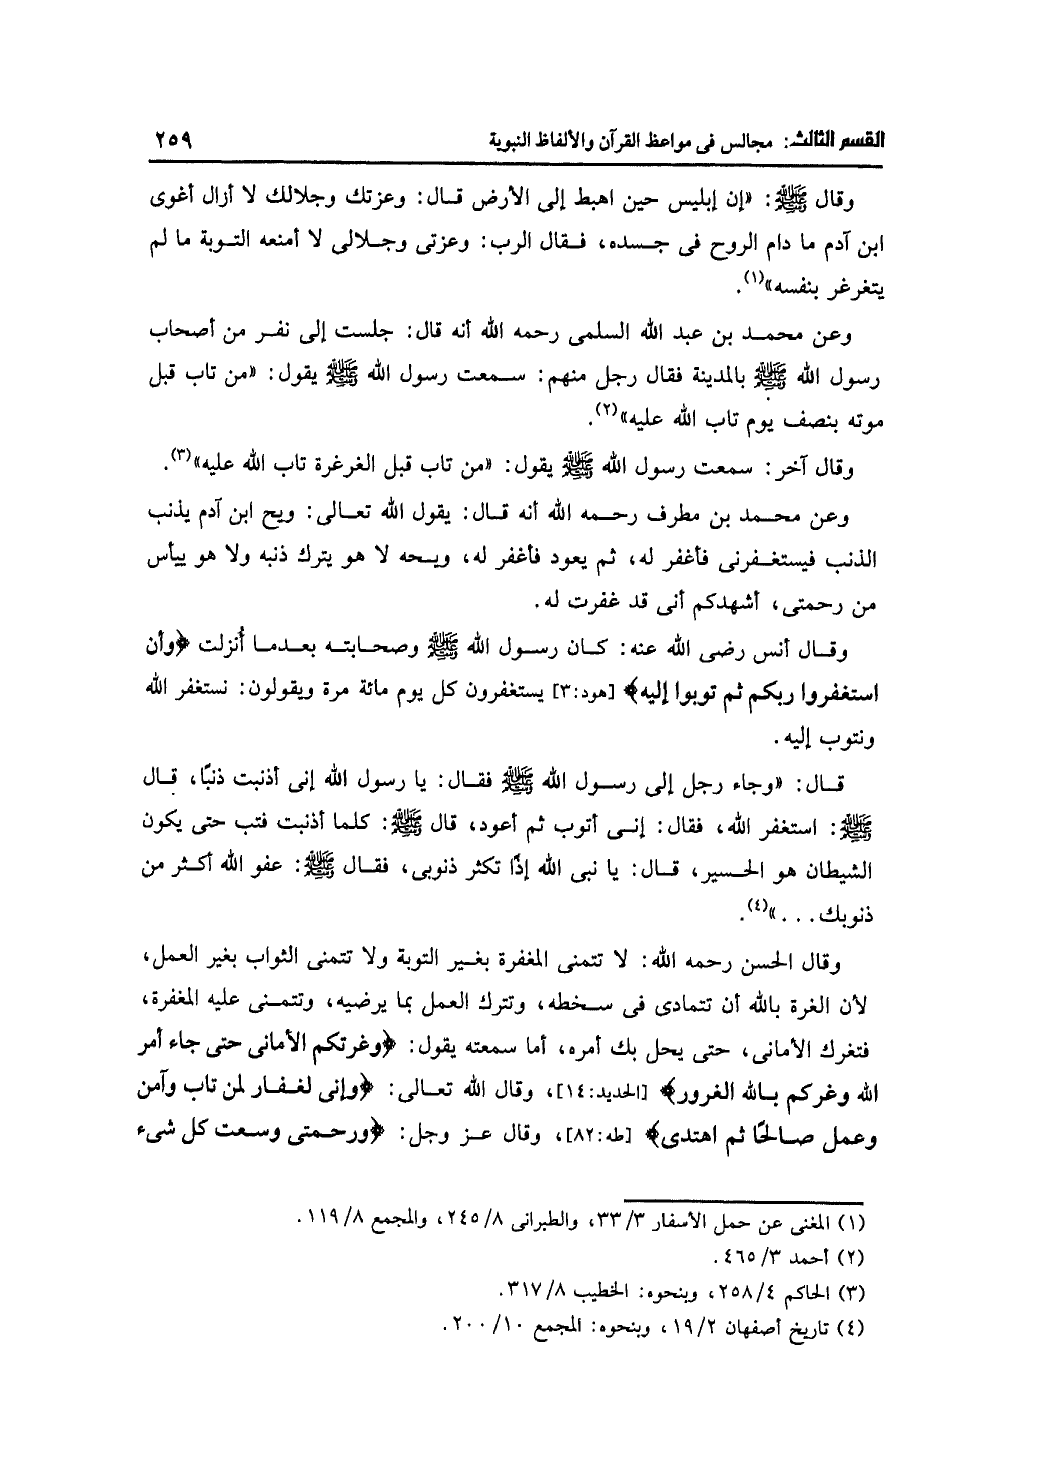 القسم الثالث: مجالس فى مواعظ القرآن والألفاظ النبوية ٢٥٩
وقال ﷺ: «إن إبليس حين اهبط إلى الأرض قال: وعزتك وجلالك لا أزال أغوى
ابن آدم ما دام الروح فى جسده، فقال الرب: وعزتى وجلالى لا أمنعه التوبة ما لم
يتغرغر بنفسه»(١).
وعن محمد بن عبد الله السلمى رحمه الله أنه قال: جلست إلى نفر من أصحاب
رسول الله ﷺ بالمدينة فقال رجل منهم: سمعت رسول الله ﷺ يقول: «من تاب قبل
موته بنصف يوم تاب الله عليه»(٢).
وقال آخر: سمعت رسول الله ﷺ يقول: «من تاب قبل الغرغرة تاب الله عليه»(٣).
وعن محمد بن مطرف رحمه الله أنه قال: يقول الله تعالى: ويح ابن آدم يذنب
الذنب فيستغفرنى فأغفر له، ثم يعود فأغفر له، ويحه لا هو يترك ذنبه ولا هو ييأس
من رحمتى، أشهدكم أنى قد غفرت له.
وقال أنس رضى الله عنه: كان رسول الله ﷺ وصحابته بعدما أُنزلت ﴿وأن
استغفروا ربكم ثم توبوا إليه﴾ [هود:٣] يستغفرون كل يوم مائة مرة ويقولون: نستغفر الله
ونتوب إليه.
قال: «وجاء رجل إلى رسول الله ﷺ فقال: يا رسول الله إنى أذنبت ذنبًا، قال
ﷺ: استغفر الله، فقال: إنى أتوب ثم أعود، قال ﷺ: كلما أذنبت فتب حتى يكون
الشيطان هو الحسير، قال: يا نبى الله إذًا تكثر ذنوبى، فقال ﷺ: عفو الله أكثر من
ذنوبك...»(٤).
وقال الحسن رحمه الله: لا تتمنى المغفرة بغير التوبة ولا تتمنى الثواب بغير العمل،
لأن الغرة بالله أن تتمادى فى سخطه، وتترك العمل بما يرضيه، وتتمنى عليه المغفرة،
فتغرك الأمانى، حتى يحل بك أمره، أما سمعته يقول: ﴿وغرتكم الأمانى حتى جاء أمر
الله وغركم بالله الغرور﴾ [الحديد:١٤]، وقال الله تعالى: ﴿وإنى لغفار لمن تاب وآمن
وعمل صالحًا ثم اهتدى﴾ [طه:٨٢]، وقال عز وجل: ﴿ورحمتى وسعت كل شىء
(١) المغنى عن حمل الأسفار ٣/ ٣٣، والطبرانى ٨/ ٢٤٥، والمجمع ٨/ ١١٩.
(٢) أحمد ٣/ ٤٦٥.
(٣) الحاكم ٤/ ٢٥٨، وبنحوه: الخطيب ٨/ ٣١٧.
(٤) تاريخ أصفهان ٢/ ١٩، وبنحوه: المجمع ١٠/ ٢٠٠.